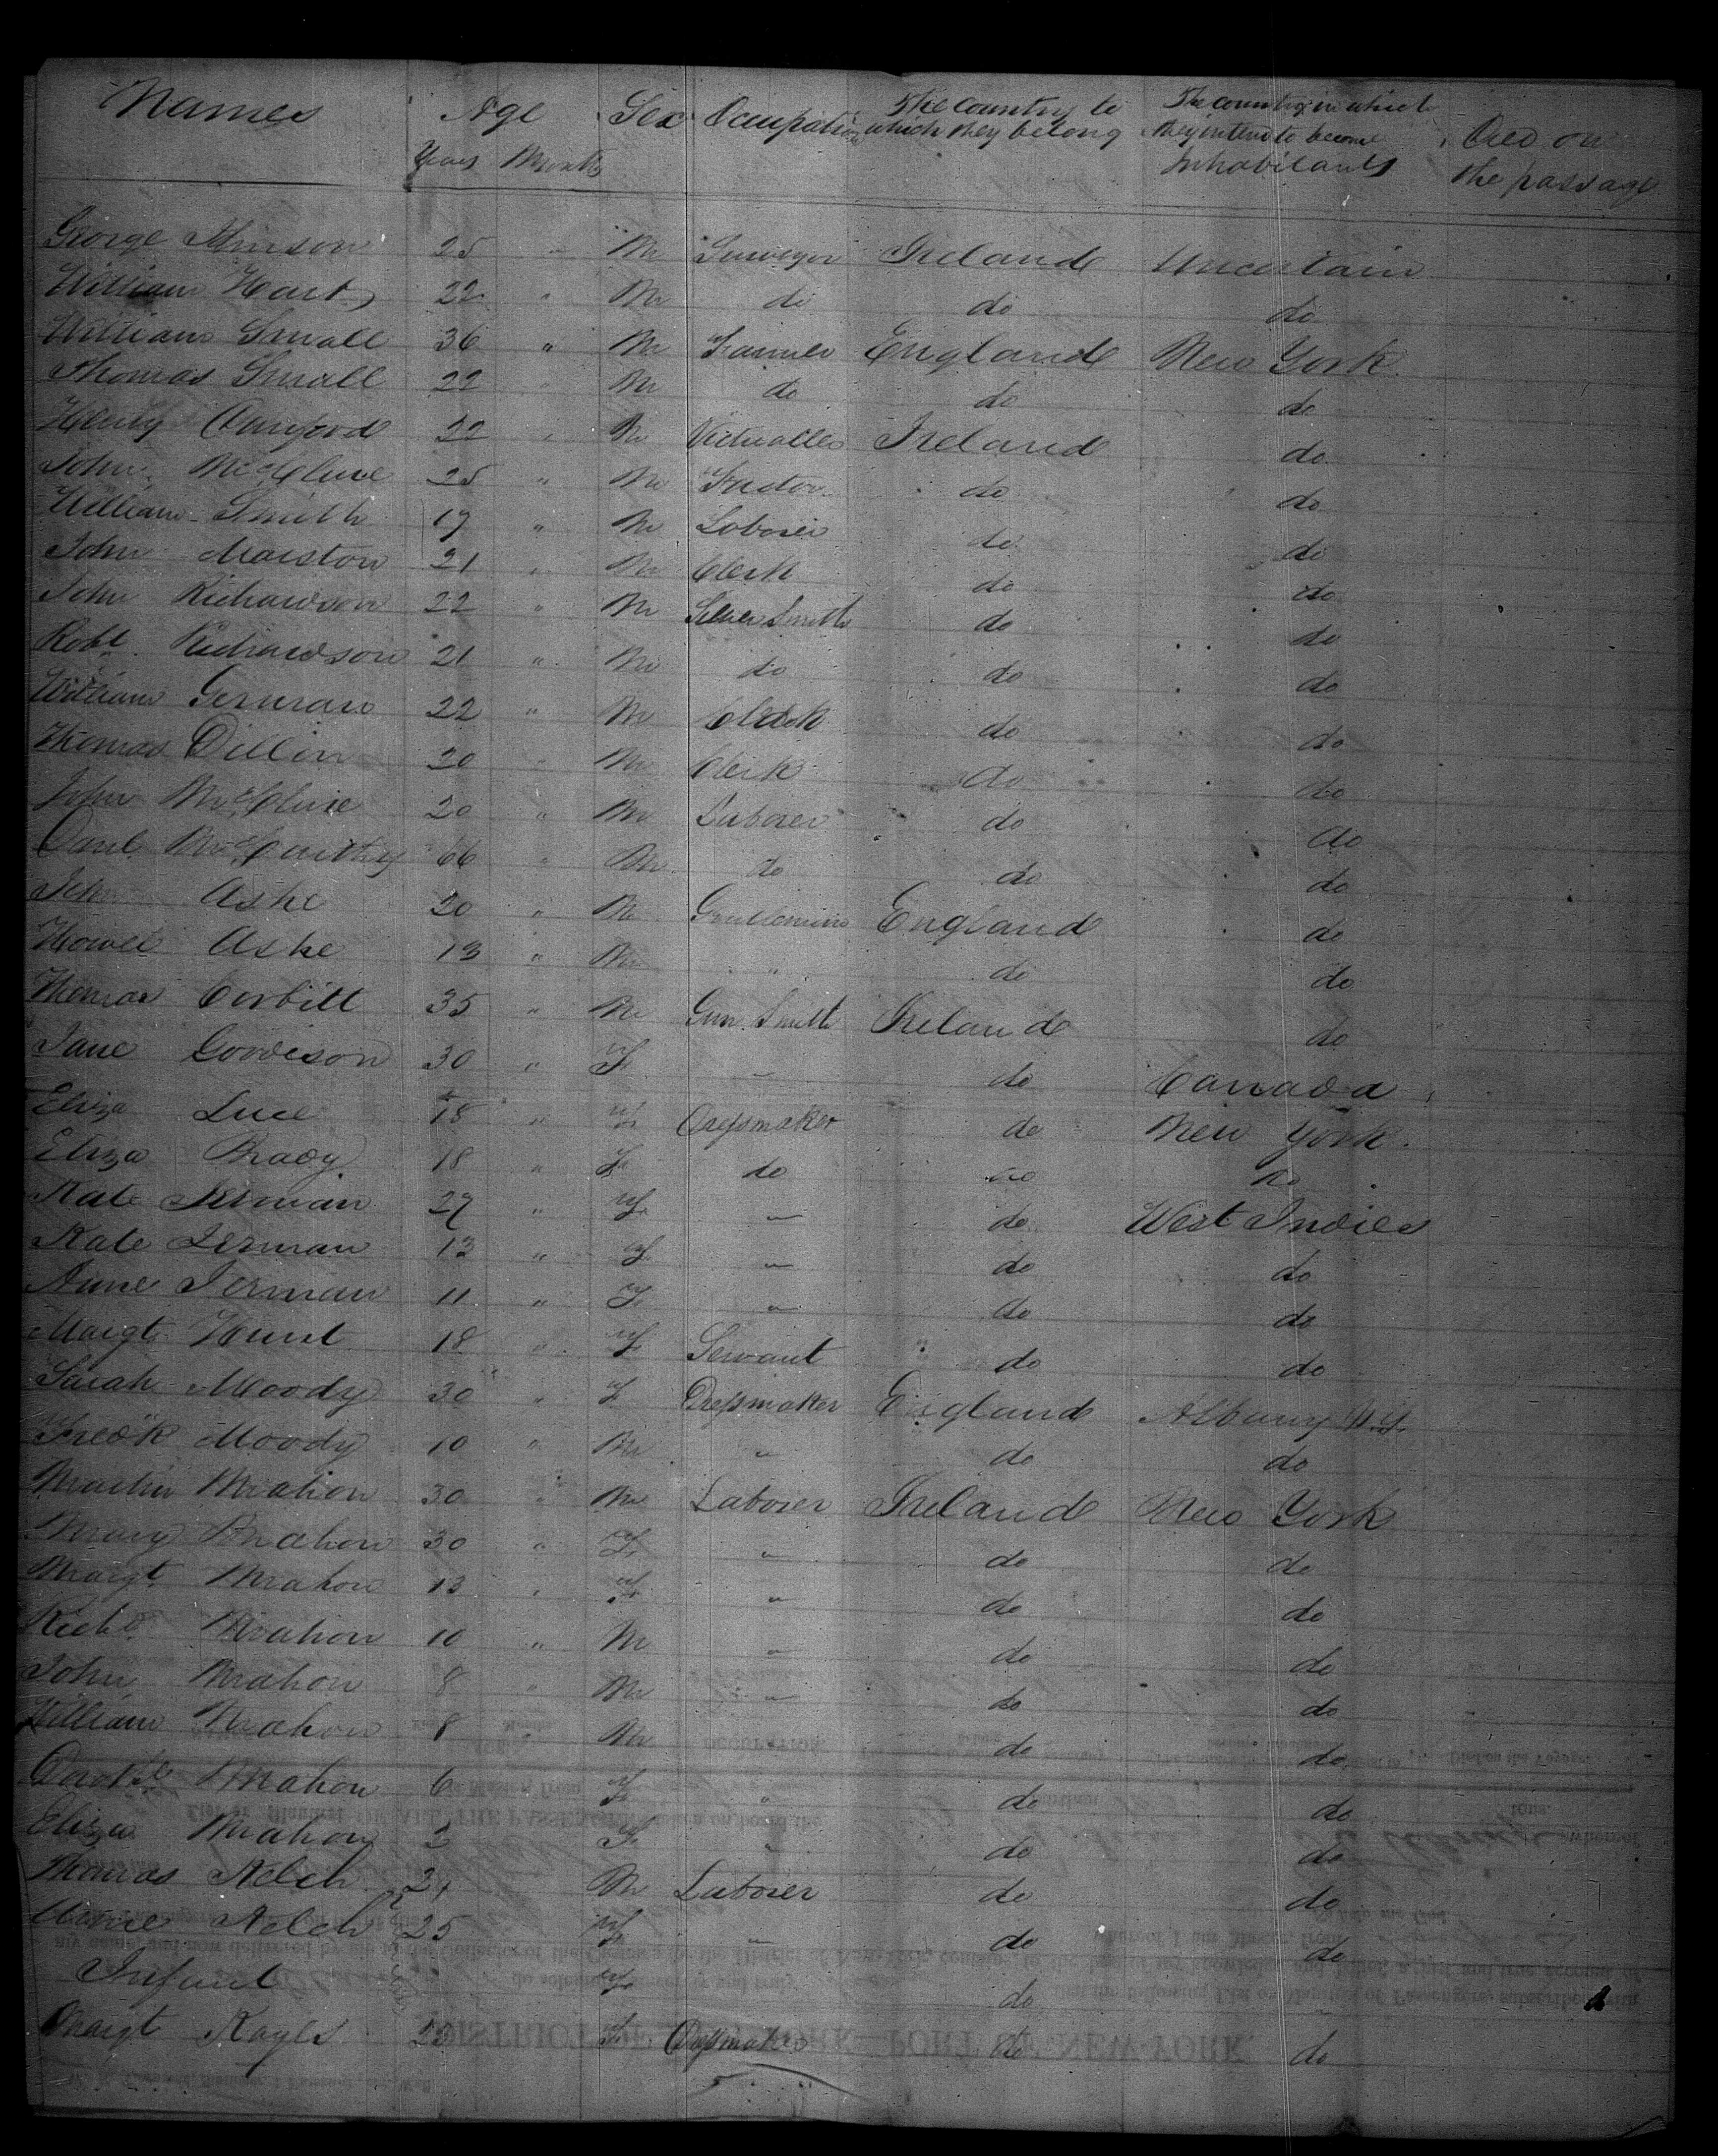 Names Age Sex Occupation The Country to which they belong The country in which they intend to become Inhabitants Died on the passage
Years Months
George 25 " M Surveyor Ireland Uncertain
William Hart 22 " M do do do
William Small 36 " M Farmer England New York
Thomas Small 22 " M do do do
Henry 22 " M Victualler Ireland do
John McClure 25 " M do do
William Smith 19 " M Laborer do do
John Marston 21 " M Clerk do do
John Richardson 22 " M Silver Smith do do
Robt Richardson 21 " M do do do
William German 22 " M Clerk do do
Thomas Dillon 20 " M Clerk do do
John McClure 20 " M Laborer do do
Danl McCarthy 66 " M do do do
John Ashe 20 " M England do
Howel Ashe 13 " M " do do
Thomas Corbitt 35 " M Gun Smith Ireland do
Jane 30 " F " do Canada
Eliza Luce 18 " F Dressmaker do New York
Eliza Brady 18 " F do do do
Kate Jerman 27 " F " do West Indies
Kate Jerman 13 " F " do do
Anne Jerman 11 " F " do do
Margt Hunt 18 " F Servant do do
Sarah Moody 30 " F Dressmaker England Albany N.Y.
Fredk Moody 10 " M " do do
Martin Mahon 30 " M Laborer Ireland New York
Mary Mahon 30 " F " do do
Margt Mahon 13 " F " do do
Richd Mahon 10 " M " do do
John Mahon 8 " M " do do
William Mahon 8 " M " do do
Mahon 6 F " do do
Eliza Mahon 2 F " do do
Thomas Welch M Laborer do do
Welch 25 F " do do
Infant F do "
Margt F Dressmaker do do